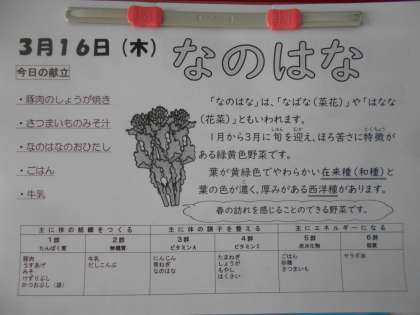 3月16日（木）
なのはな
今日の献立
・豚肉のしょうが焼き
・さつまいものみそ汁
・なのはなのおひたし
・ごはん
・牛乳
「なのはな」は、「なばな（菜花）」や「はなな
（花菜）」ともいわれます。
1月から3月に旬を迎え、ほろ苦さに特徴が
ある緑黄色野菜です。
葉が黄緑色でやわらかい在来種（和種）と
葉の色が濃く、厚みがある西洋種があります。
春の訪れを感じることのできる野菜です。
主に体の組織をつくる 主に体の調子を整える 主にエネルギーになる
1群 2群 3群 4群 5群 6群
たんぱく質 無機質 ビタミンA ビタミンC 炭水化物 脂質
豚肉 牛乳 にんじん たまねぎ ごはん サラダ油
うすあげ だしこんぶ 青ねぎ しょうが 砂糖
みそ なのはな もやし さつまいも
けずりぶし はくさい
かつおぶし（袋）